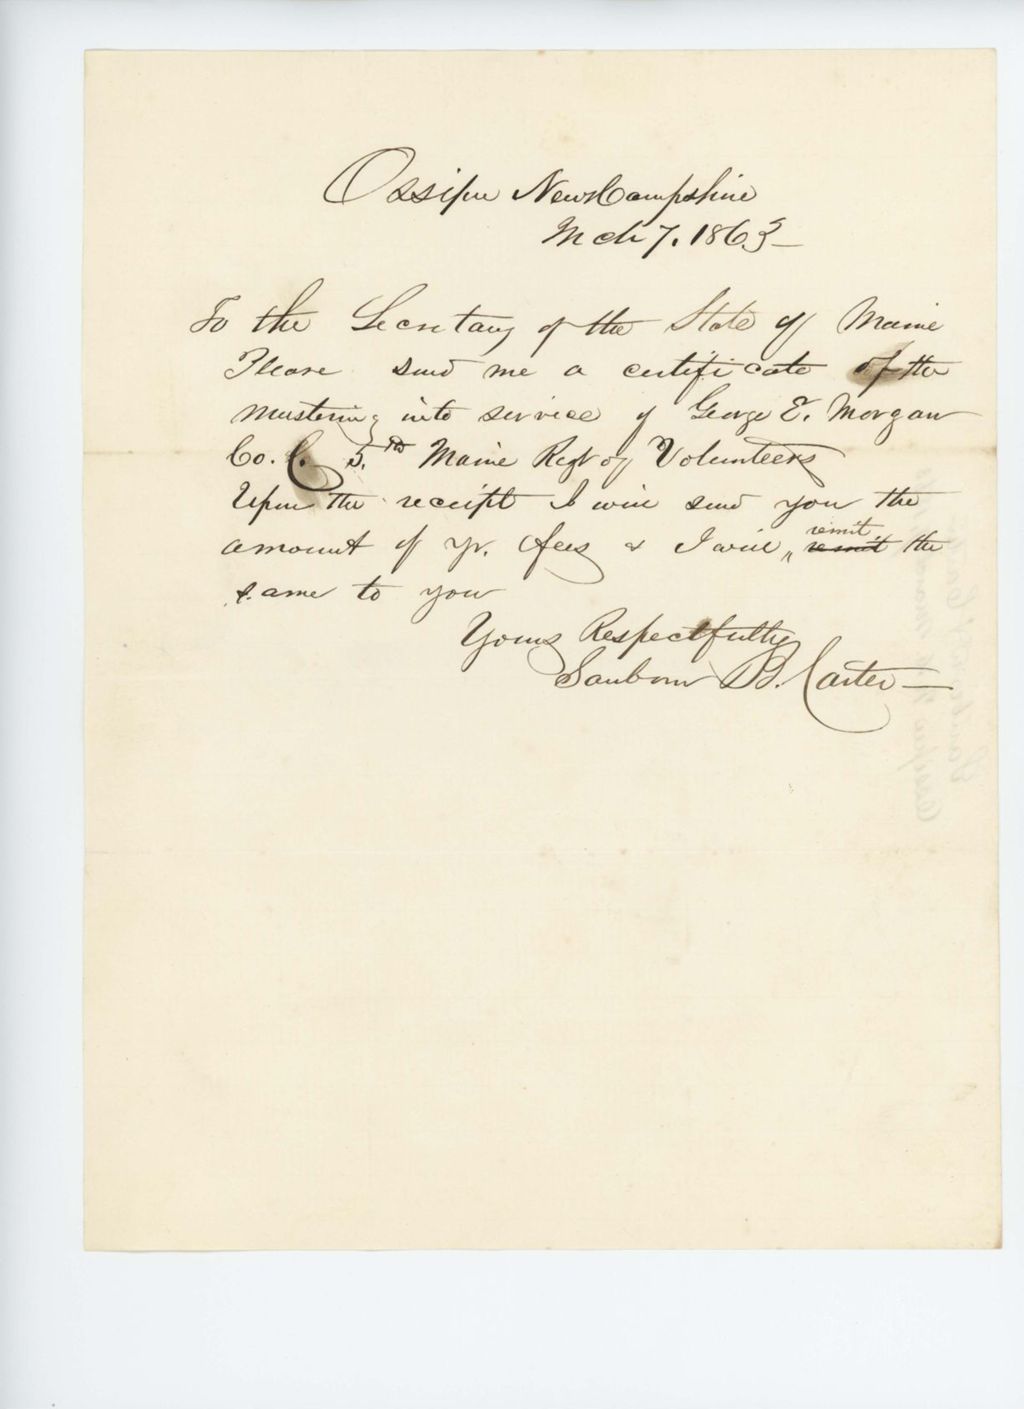 Ossipee New Hampshire
Mch 7. 1863
To the Secretary of the State of Maine
Please send me a certificate of the
mustering into service of George E. Morgan
Co. C. 5.th Maine Regt of Volunteers
Upon the receipt I will send you the
amount of yr. fees & I will remit remit the
same to you
Yours Respectfully
Sanborn B. Carter